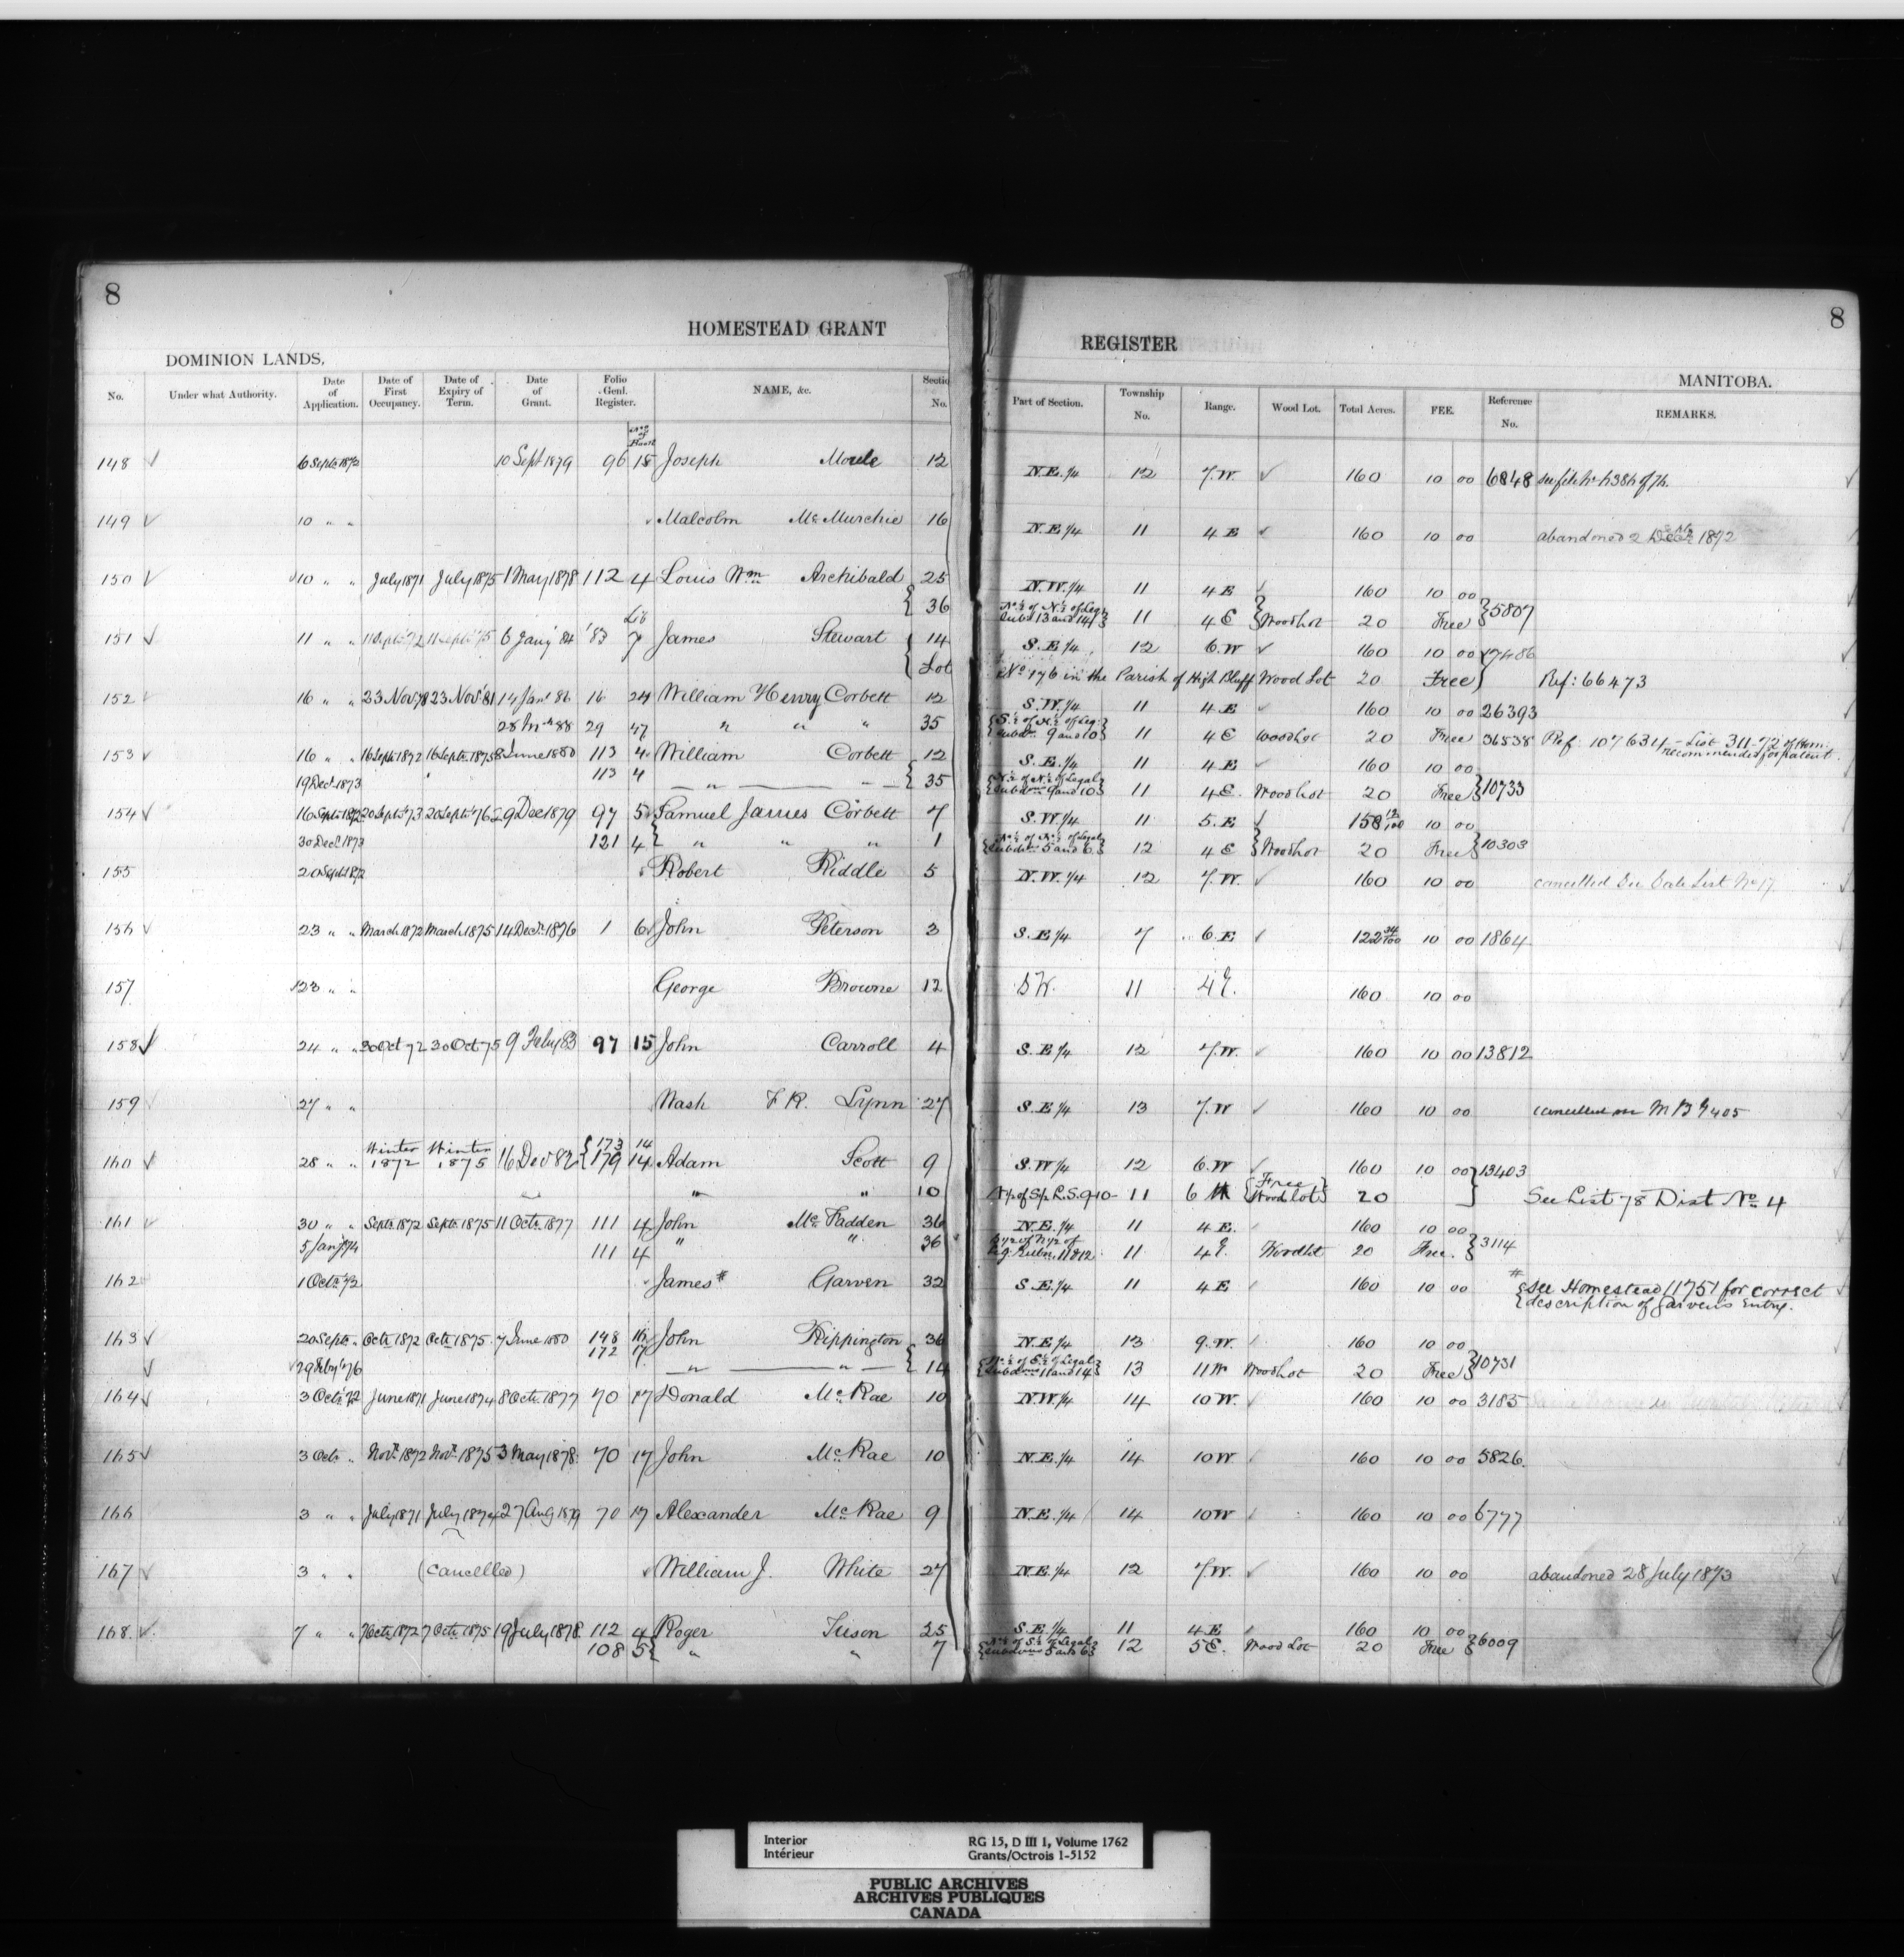 8
HOMESTEAD GRANT
DOMINION LANDS.
No. Under what Authority. Date of Application. Date of First Occupancy. Date of Expiry of Term. Date of Grant. Folio Genl. Register. NAME, &c. Sectio No.
148 6 Sept. 1872 10 Sept 1879 96 15 Joseph Moule 12
149 10 " " Malcolm Mc Murchie 16
150 10 " " July 1871 July 1875 1 May 1878 112 4 Louis Wm Archibald 25
36
151 11 " " 11 Sept. 72 11 Septr. 75 6 Jany 84 '83 7 James Stewart 14
Lot
152 16 " " 23 Nov. 78 23 Nov. 81 14 Jany 86 16 24 William Henry Corbett 12
28 Mch 88 29 47 " " " 35
153 16 " " 16 Sept 1872 16 Septr. 1875 8 June 1880 113 4 William Corbett 12
19 Dec. 1873 113 4 " 35
154 16 Septr. 1872 20 Septr. 73 20 Septr. 76 29 Dec 1879 97 5 Samuel James Corbett 7
30 Dec. 1873 121 4 " " " 1
155 20 Sept. 1872 Robert Riddle 5
156 23 " " March 1872 March 1875 14 Decr. 1876 1 6 John Peterson 3
157 23 " " George Browne 12
158 24 " " 30 Oct 72 30 Oct 75 9 Feby 83 97 15 John Carroll 4
159 27 " " Nash F R. Lynn 27
160 28 " " Winter 1872 Winter 1875 16 Dec 82 173 14 179 14 Adam Scott 9
" " 10
161 30 " " Septr. 1872 Septr. 1875 11 Octr. 1877 111 4 John Mc Fadden 36
5 Jany 74 111 4 " " 36
162 1 Octr. 72 James # Garven 32
163 20 Septr. " Octr. 1872 Octr. 1875 7 June 1880 148 16 John Hippington 36
172 17
29 Feby 76 " " 14
164 3 Octr. 72 June 1871 June 1874 8 Octr. 1877 70 17 Donald Mc Rae 10
165 3 Octr. " Novr. 1872 Novr. 1875 3 May 1878 70 17 John Mc Rae 10
166 3 " " July 1871 July 1874 27 Aug 1879 70 17 Alexander Mc Rae 9
167 3 " " (Cancelled) William J. White 27
168 7 " " 7 Octr. 1872 7 Octr. 1875 19 July 1878 112 4 Roger Tuson 25
108 5 " " 7
8
REGISTER
MANITOBA.
Part of Section. Township No. Range. Wood Lot. Total Acres. FEE. Reference No. REMARKS.
N.E. 1/4 12 7.W. 160 10 00 6848
N.E 1/4 11 4 E 160 10 00 abandoned 2 1872
N.W. 1/4 11 4 E 160 10 00
N. ½ of N. ½ of Leg. Subd. 13 and 14 11 4 E Wood Lot 20 Free 5807
S.E 1/4 12 6.W 160 10 00 17486
No. 176 in the Parish of High Bluff Wood Lot 20 Free Ref: 66473
S.W. 1/4 11 4 E 160 10 00 26393
S. ½ of N. ½ of Leg. Subdn. 9 and 10 11 4 E Wood Lot 20 Free 36538 Ref: 107631 - List 311-72 of Hom: recommended for patent.
S.E. 1/4 11 4 E 160 10 00
N. ½ of N. ½ of Legal Subdns 9 and 10 11 4 E. Wood Lot 20 Free 10733
S.W. 1/4 11 5.E 158 12/100 10 00
N. ½ of N. ½ of Legal Subdns 5 and 6 12 4 E Wood Lot 20 Free 10303
N.W. 1/4 12 7.W. 160 10 00 cancelled See Sale List No 17
S.E 1/4 7 6.E 122 34/100 10 00 1864
S W. 11 4 E. 160 10 00
S.E 1/4 12 7.W. 160 10 00 13812
S.E 1/4 13 7.W 160 10 00 cancelled
S.W 1/4 12 6.W 160 10 00 13403
L.S. 9-10 - 11 6 W Free Wood lot 20 See List 78 Dist No 4
N.E. 1/4 11 4 E. 160 10 00
11 & 12 11 4 E. Woodlot 20 Free. 3114
S.E. 1/4 11 4 E 160 10 00 # See Homestead 11751 for correct
description of Garven's Entry.
N.E 1/4 13 9.W. 160 10 00
N. ½ of S. ½ of Legal Subdvns 11 and 14 13 11 W Wood Lot 20 Free 10731
N.W. 1/4 14 10 W. 160 10 00 3185
N.E. 1/4 14 10 W 160 10 00 5826.
N.E. 1/4 14 10 W 160 10 00 6777
N.E. 1/4 12 7.W. 160 10 00 abandoned 28 July 1873
S.E 1/4 11 4 E 160 10 00
N. ½ of S. ½ of Legal Subdvns 5 and 6 12 5 E. Wood Lot 20 Free 6009
Interior
Intérieur
RG 15, D III 1, Volume 1762
Grants/Octrois 1-5152
PUBLIC ARCHIVES
ARCHIVES PUBLIQUES
CANADA